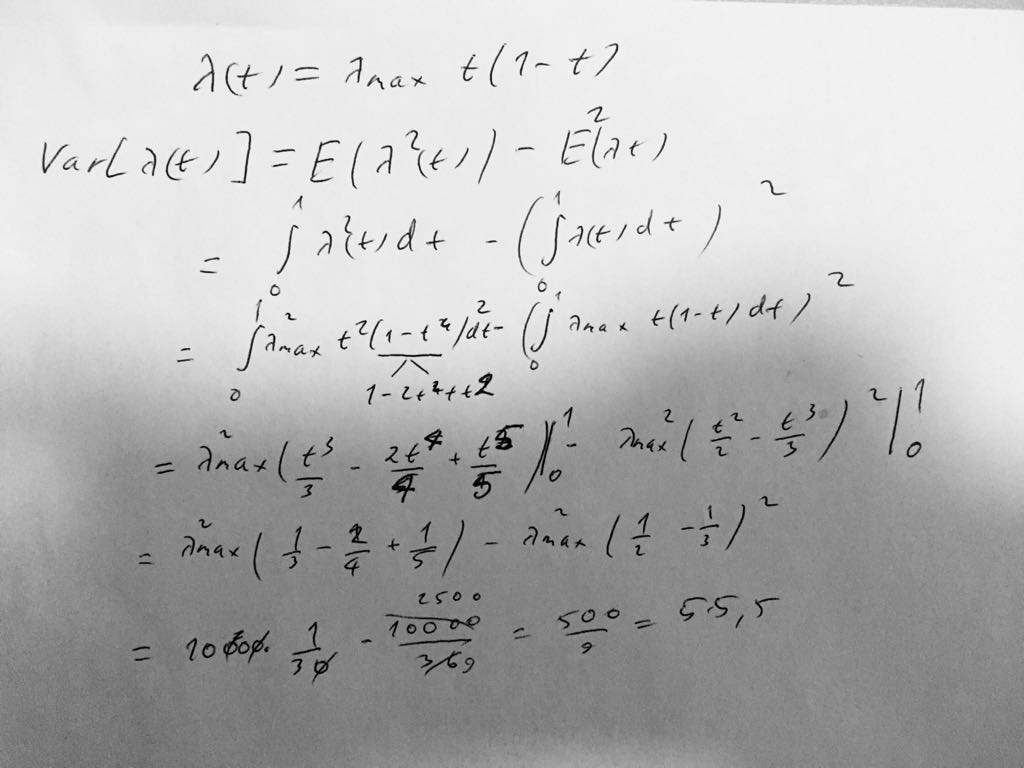 λ(t) = λmax t(1-t)
Var[λ(t)] = E(λ²(t)) - E²(λt)
= ∫₀¹ λ²(t)dt - (∫₀¹ λ(t)dt)²
= ∫₀¹ λ²max t²(1-t²)²dt - (∫₀¹ λmax t(1-t)dt)²
1-2t²+t2
= λ²max(t³/3 - 2t⁴/4 + t⁵/5)|₀¹ - λmax²(t²/2 - t³/3)²|₀¹
= λ²max(1/3 - 2/4 + 1/5) - λ²max(1/2 - 1/3)²
2500
= 10000· 1/30 - 10000/36 9 = 500/9 = 55,5